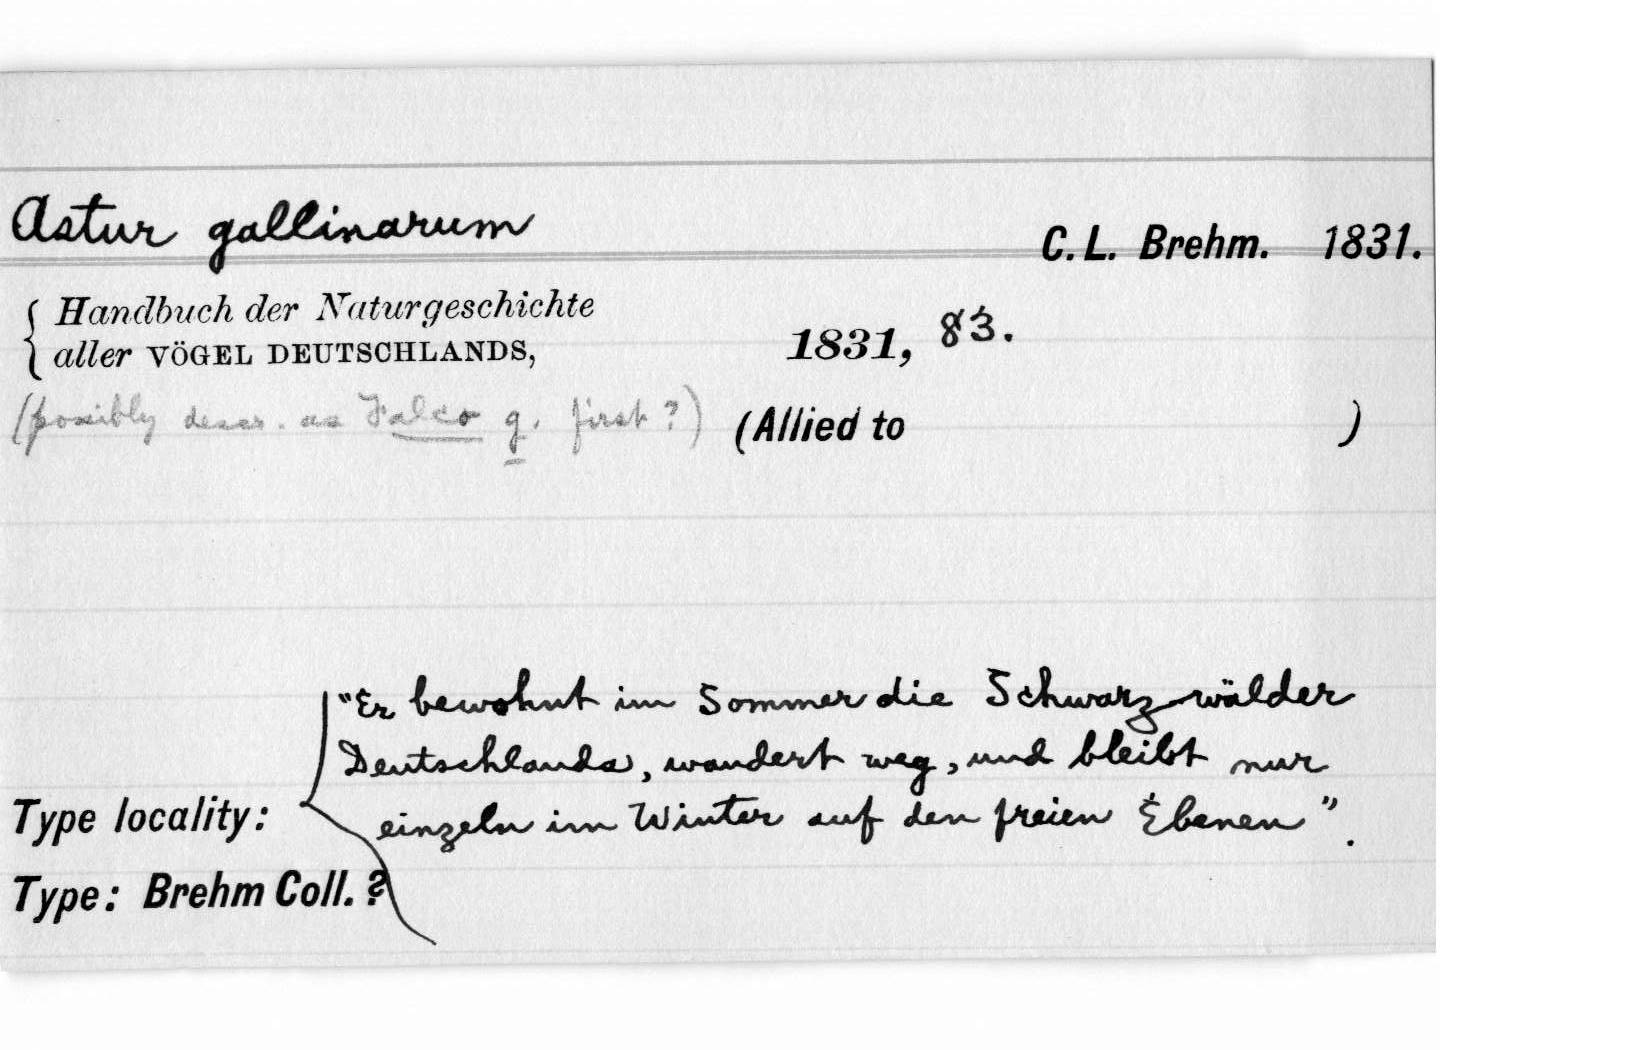 Astur gallinarum
C. L. Brehm. 1831.
Handbuch der Naturgeschichte
aller VÖGEL DEUTSCHLANDS, 1831, 83.
(possibly descr. as Falco g. first?) (Allied to )
"Er bewohnt im Sommer die Schwarz-wälder
Deutschlands, wandert weg, und bleibt nur
Type locality: einzeln im Winter auf den freien Ebenen".
Type: Brehm Coll. ?